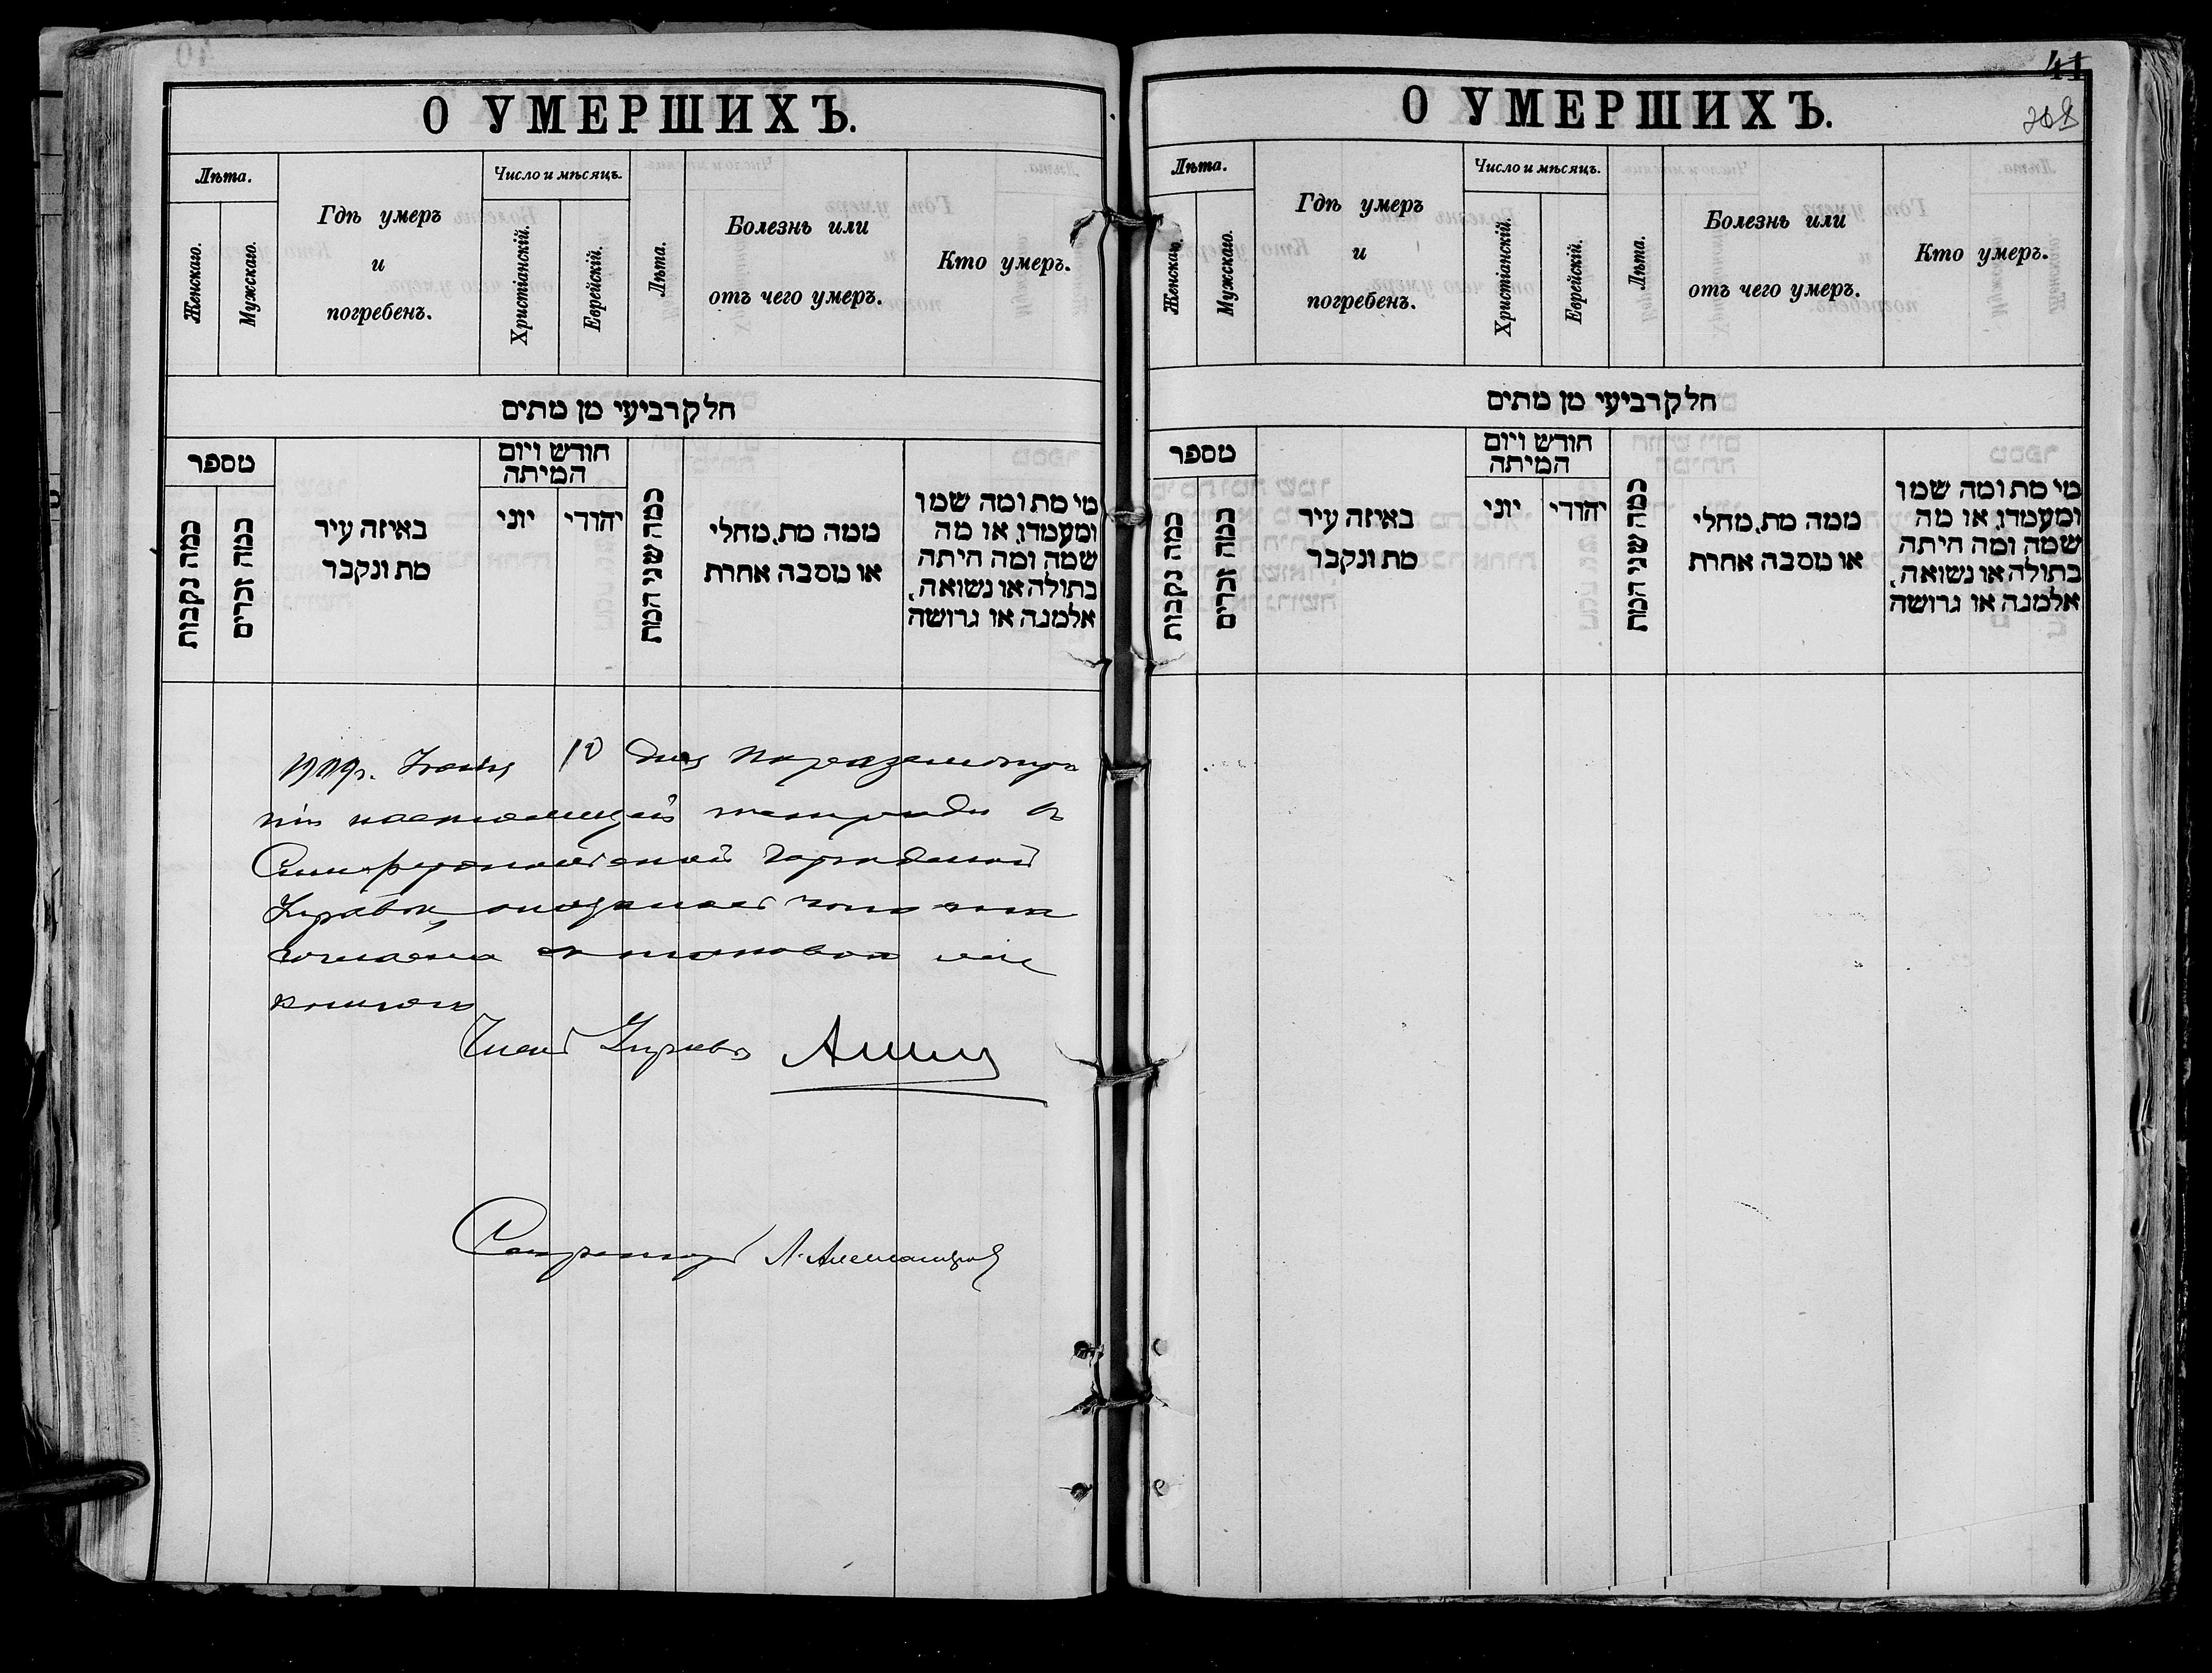 О УМЕРШИХЪ.
Лѣта.
Женскаго.
Мужскаго.
Гдѣ умеръ
и
погребенъ.
Число и мѣсяцъ.
Христіанскій.
Еврейскій.
Лѣта.
Болезнь или
отъ чего умеръ.
Кто умеръ.
חלק רביעי מן מתים
מספר
כמה נקבות
כמה זכרים
באיזה עיר
מת ונקבר
חודש ויום
המיתה
יוני
יהודי
כמה שני המת
ממה מת, מחלי
או מסבה אחרת
מי מת ומה שמו
ומעמדו, או מה
שמה ומה היתה
בתולה או נשואה,
אלמנה או גרושה
10 дня
настоящей тетради в
Симферопольской Городской
Управе, оказалось что она
Член Управы
Секретарь
41
О УМЕРШИХЪ.
Лѣта.
Женскаго.
Мужскаго.
Гдѣ умеръ
и
погребенъ.
Число и мѣсяцъ.
Христіанскій.
Еврейскій.
Лѣта.
Болезнь или
отъ чего умеръ.
Кто умеръ.
חלק רביעי מן מתים
מספר
כמה נקבות
כמה זכרים
באיזה עיר
מת ונקבר
חודש ויום
המיתה
יוני
יהודי
כמה שני המת
ממה מת, מחלי
או מסבה אחרת
מי מת ומה שמו
ומעמדו, או מה
שמה ומה היתה
בתולה או נשואה,
אלמנה או גרושה